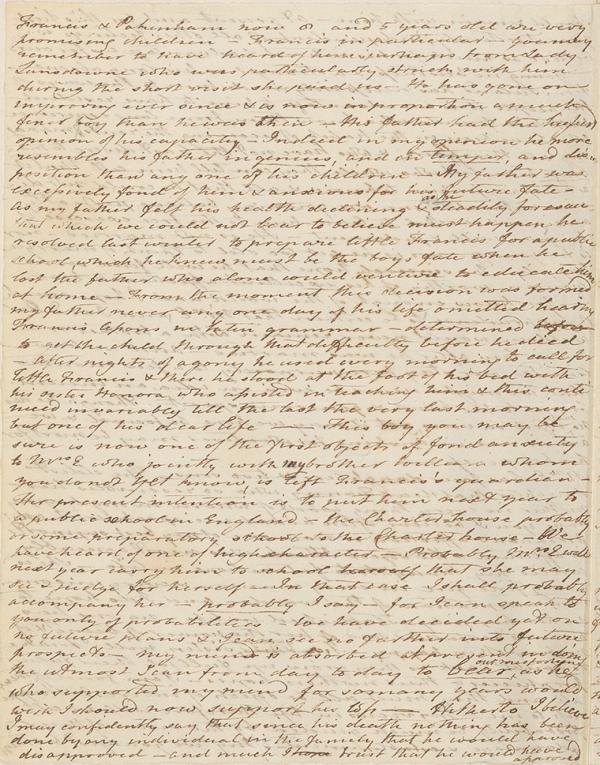 Francis & Pakenham now 8 and 5 years old are very
promising children – Francis in particular – you may
remember to have heard of him perhaps from Lady
Lansdowne who was particularly struck with him
during the short visit she paid us – He has gone on
improving ever since & is now in proportion a much
finer boy than he was then – His father had the highest
opinion of his capacity – Indeed in my opinion he more
resembles his father in genius, and in temper, and dis-
position than any one of his children – My father was
excessively fond of him & anxious for his future fate –
As my father felt his health declining & as he steadily foresaw
that which we could not bear to believe must happen, he
resolved last winter to prepare little Francis for a public
school which he knew must be the boys fate when he
lost the father who alone would venture to educate him
at home – From the moment this decision was formed
my father never any one day of his life omitted hearing
Francis's lesson in latin grammar – determined before
to get the child through that difficulty before he died
– After nights of agony he used every morning to call for
little Francis & there he stood at the foot of his bed with
his sister Honora who assisted in teaching him & this conti
nued invariably till the last the very last morning
but one of his dear life – This boy you may be
sure is now one of the first objects of fond anxiety
to Mrs E who jointly with my brother William whom
you do not yet know, is left Francis's guardian –
Her present intention is to put him next year to
a public school in England – the Charterhouse probably
or some preparatory school to the Charterhouse – We
have heard of one of high character – Probably Mrs E will
next year carry him to school herself that she may
see & judge for herself – In that case I shall probably
accompany her – probably I say – for I can speak to
you only of probabilities – We have decided yet on
no future plans & I can see no farther into future
prospects – my mind is absorbed at present in doing
the utmost I can from day to day to bear our misfortune as he
who supported my mind for so many years would
wish I should now support his loss – Hitherto I believe
I may confidently say that since his death nothing has been
done by any individual in the family that he would have
disapproved – and much I trust that he would have
approved